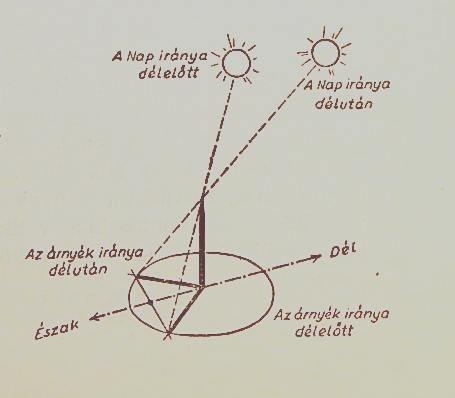 A Nap iránya
délelőtt
A Nap iránya
délután
Az árnyék iránya
délután
Dél
Észak
Az árnyék iránya
délelőtt